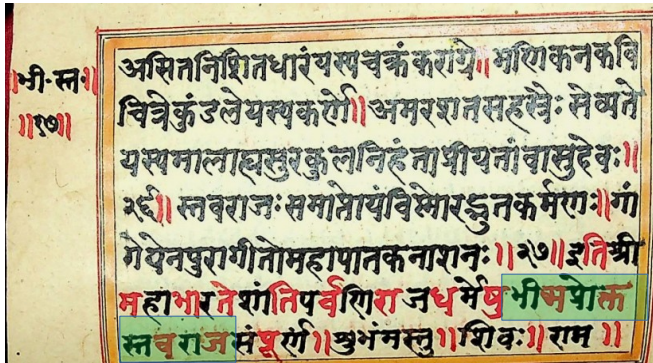 ॥भी-स्त॥
॥१७॥
असितनिशितधारंयस्यचक्रंकराग्रे॥मणिकनकवि
चित्रेकुंडलेयस्यकर्णे॥अमरशतसहस्रैःसेव्यते
यस्यमालाह्यसुरकुलनिहंताप्रीयतांवासुदेवः॥
२६॥स्तवराजःसमाप्तोयंविष्णोरद्भुतकर्मणः॥गां
गेयेनपुरागीतोमहापातकनाशनः॥२७॥इतिश्री
महाभारतेशांतिपर्वणिराजधर्मेषुभीष्मप्रोक्त
स्तवराजसंपूर्ण॥शुभंमस्तु॥शिवः॥राम॥